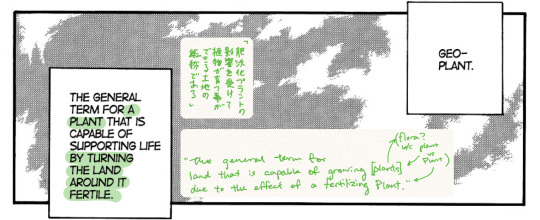 GEO-
PLANT.
「肥沃化プラントの
影響を受けて
植物が育つ事が
できる土地の
総称である」
THE GENERAL
TERM FOR A
PLANT THAT IS
CAPABLE OF
SUPPORTING LIFE
BY TURNING
THE LAND
AROUND IT
FERTILE.
"the general term for
land that is capable of growing [plants]
due to the effect of a fertilizing Plant."
(flora?
b/c plant
vs
Plant)